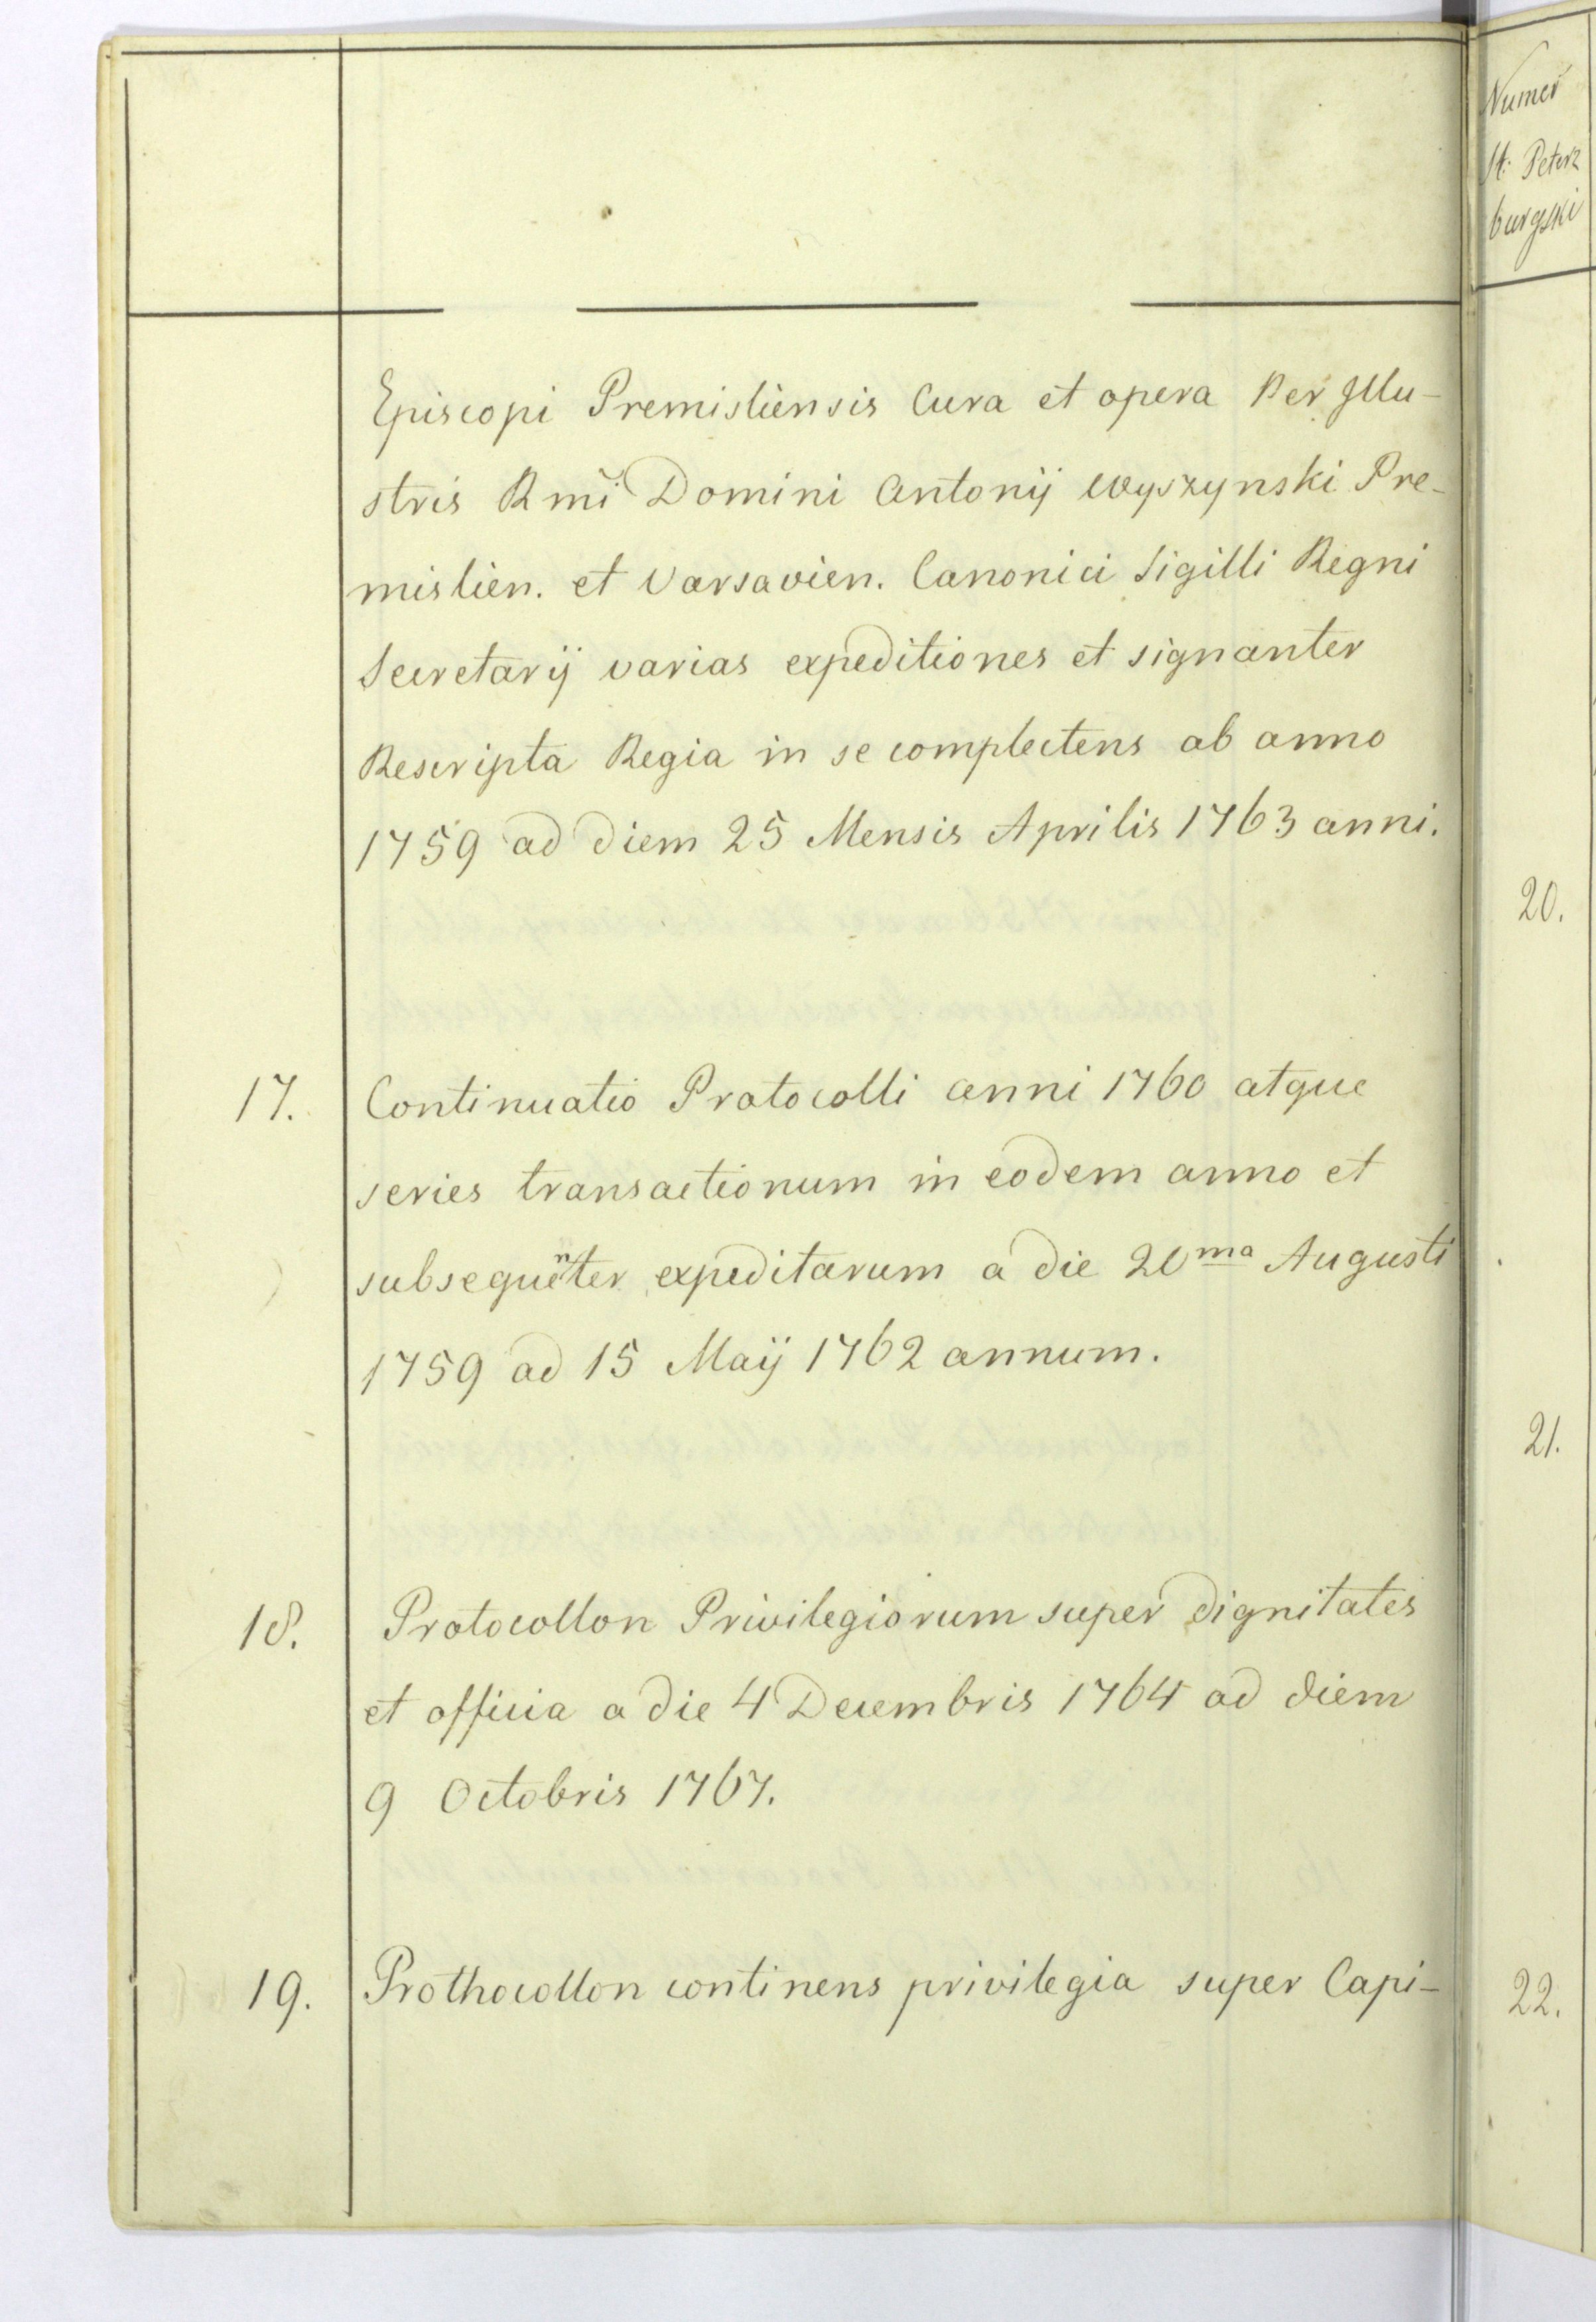 Episcopi Premisliensis Cura et opera Per Illu-
stris Rmi Domini Antonij Wyszynski Pre-
mislien. et Varsavien. Canonici Sigilli Regni
Secretarij varias expeditiones et signanter
Rescripta Regia in se complectens ab anno
1759 ad diem 25 Mensis Aprilis 1763 anni.
17. Continuatio Protocolli anni 1760 atque
series transactionum in eodem anno et
subsequenter expeditarum a die 20ma Augusti
1759 ad 15 Maij 1762 annum.
18. Protocollon Privilegiorum super dignitates
et officia a die 4 Decembris 1764 ad diem
9 Octobris 1767.
19. Prothocollon continens privilegia super Capi-
Numer
St: Peterz
burgski
20.
21.
22.